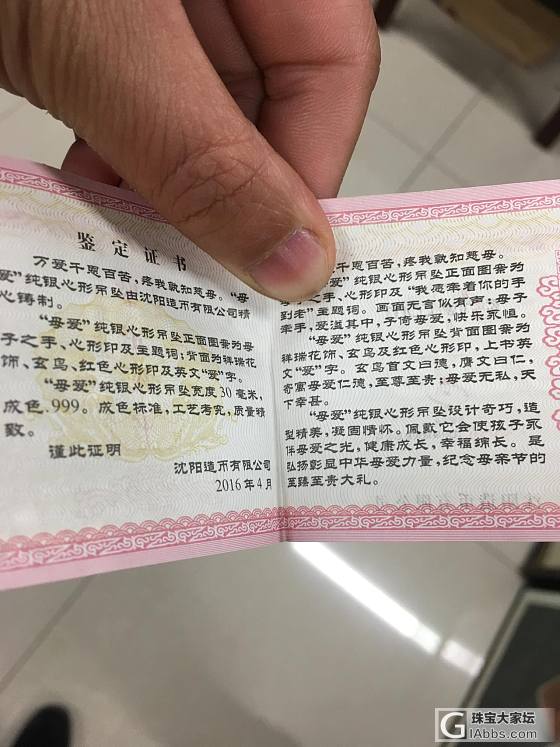 鉴定证书
万爱千恩百苦，疼我孰知慈母。“母
爱”纯银心形吊坠由沈阳造币有限公司精
心铸制。
“母爱”纯银心形吊坠正面图案为母
子之手、心形印及主题词；背面为祥瑞花
饰、玄鸟、红色心形印及英文“爱”字。
“母爱”纯银心形吊坠宽度30毫米，
成色.999。成色标准，工艺考究，质量精
致。
谨此证明
沈阳造币有限公司
2016年4月
爱千恩百苦，疼我孰知慈母。
爱”纯银心形吊坠正面图案为
子之手、心形印及“我愿牵着你的手
到老”主题词。画面无言似有声：母子
牵手，爱溢其中，子倚母爱，快乐永恒。
“母爱”纯银心形吊坠背面图案为
祥瑞花饰、玄鸟及红色心形印，上书英
文“爱”字。玄鸟首文曰德，膺文曰仁，
寄寓母爱仁德，至尊至贵；母爱无私，天
下幸甚。
“母爱”纯银心形吊坠设计奇巧，造
型精美，凝固情怀。佩戴它会使孩子永
伴母爱之光，健康成长，幸福绵长。是
弘扬彰显中华母爱力量，纪念母亲节的
至臻至贵大礼。
珠宝大家坛
GIabbs.com